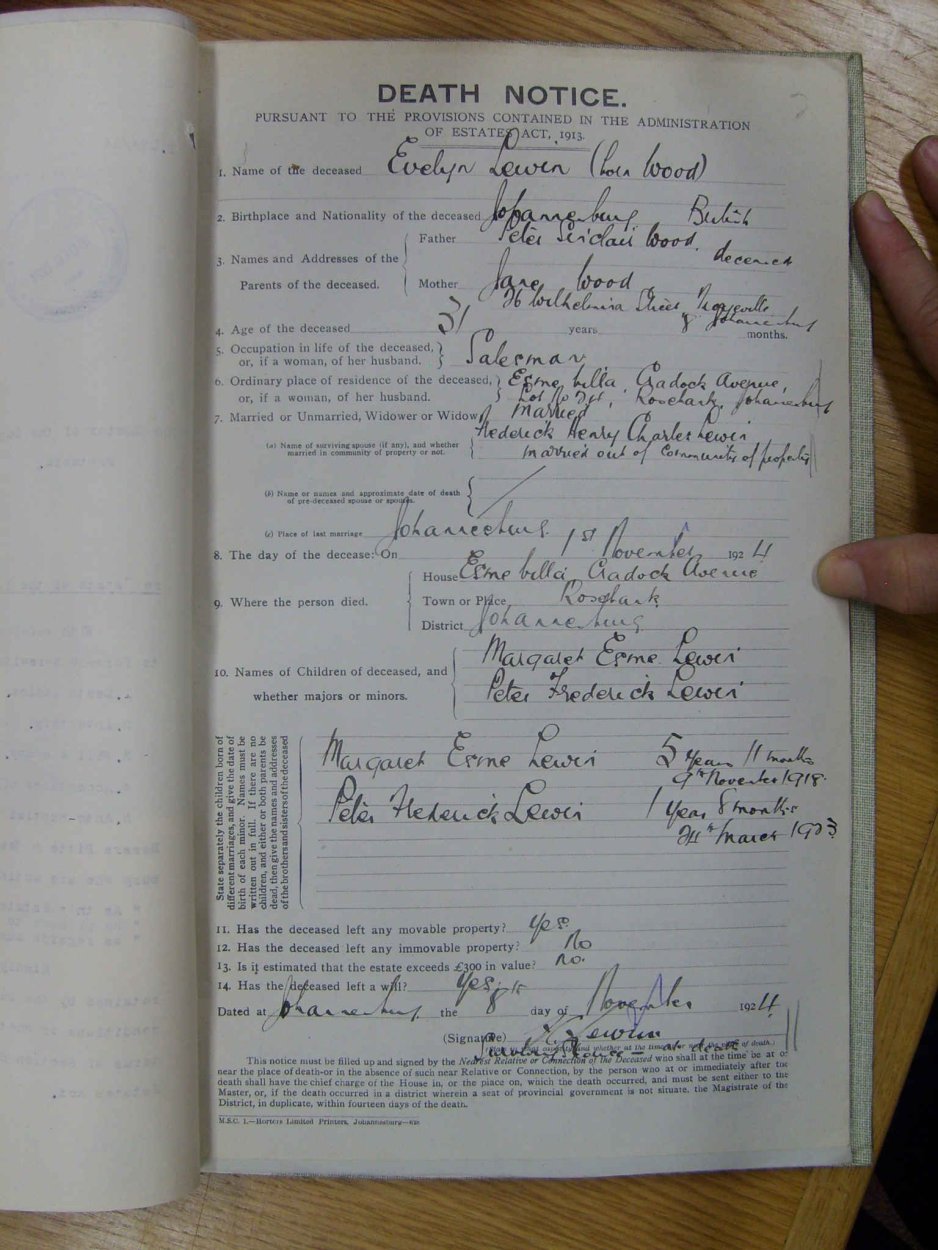 DEATH NOTICE.
PURSUANT TO THE PROVISIONS CONTAINED IN THE ADMINISTRATION
OF ESTATES ACT, 1913.
1. Name of the deceased Evelyn Lewin (born Wood)
2. Birthplace and Nationality of the deceased Johannesburg British
3. Names and Addresses of the Parents of the deceased.
Father Peter Sinclair Wood, deceased
Mother Jane Wood
26 Wilhelmina Street Troyeville
Johannesburg
4. Age of the deceased 31 years 8 months.
5. Occupation in life of the deceased, or, if a woman, of her husband. Salesman
6. Ordinary place of residence of the deceased, or, if a woman, of her husband. Esme billa, Cradock Avenue,
Rosebank, Johannesburg
7. Married or Unmarried, Widower or Widow Married
(a) Name of surviving spouse (if any), and whether married in community of property or not. Frederick Henry Charles Lewin
married out of Community of property
(b) Name or names and approximate date of death of pre-deceased spouse or spouses.
(c) Place of last marriage Johannesburg.
8. The day of the decease: On 1st November 1924
9. Where the person died.
House Esme billa Cradock Avenue
Town or Place Rosebank
District Johannesburg
10. Names of Children of deceased, and whether majors or minors.
Margaret Esme Lewin
Peter Frederick Lewin
State separately the children born of different marriages, and give the date of birth of each minor. Names must be written out in full. If there are no children, and either or both parents be dead, then give the names and addresses of the brothers and sisters of the deceased
Margaret Esme Lewin 5 Years 11 months
9th November 1918.
Peter Frederick Lewin 1 Year 8 months
March 1923
11. Has the deceased left any movable property? yes
12. Has the deceased left any immovable property? No
13. Is it estimated that the estate exceeds £300 in value? no.
14. Has the deceased left a will? Yes.
Dated at Johannesburg the 8th day of November 1924
(Signature) Lewin
Surviving Spouse - at death
This notice must be filled up and signed by the Nearest Relative or Connection of the Deceased who shall at the time be at or
near the place of death-or in the absence of such near Relative or Connection, by the person who at or immediately after the
death shall have the chief charge of the House in, or the place on, which the death occurred, and must be sent either to the
Master, or, if the death occurred in a district wherein a seat of provincial government is not situate, the Magistrate of the
District, in duplicate, within fourteen days of the death.
M.S.C. 1.—Hortors Limited Printers, Johannesburg